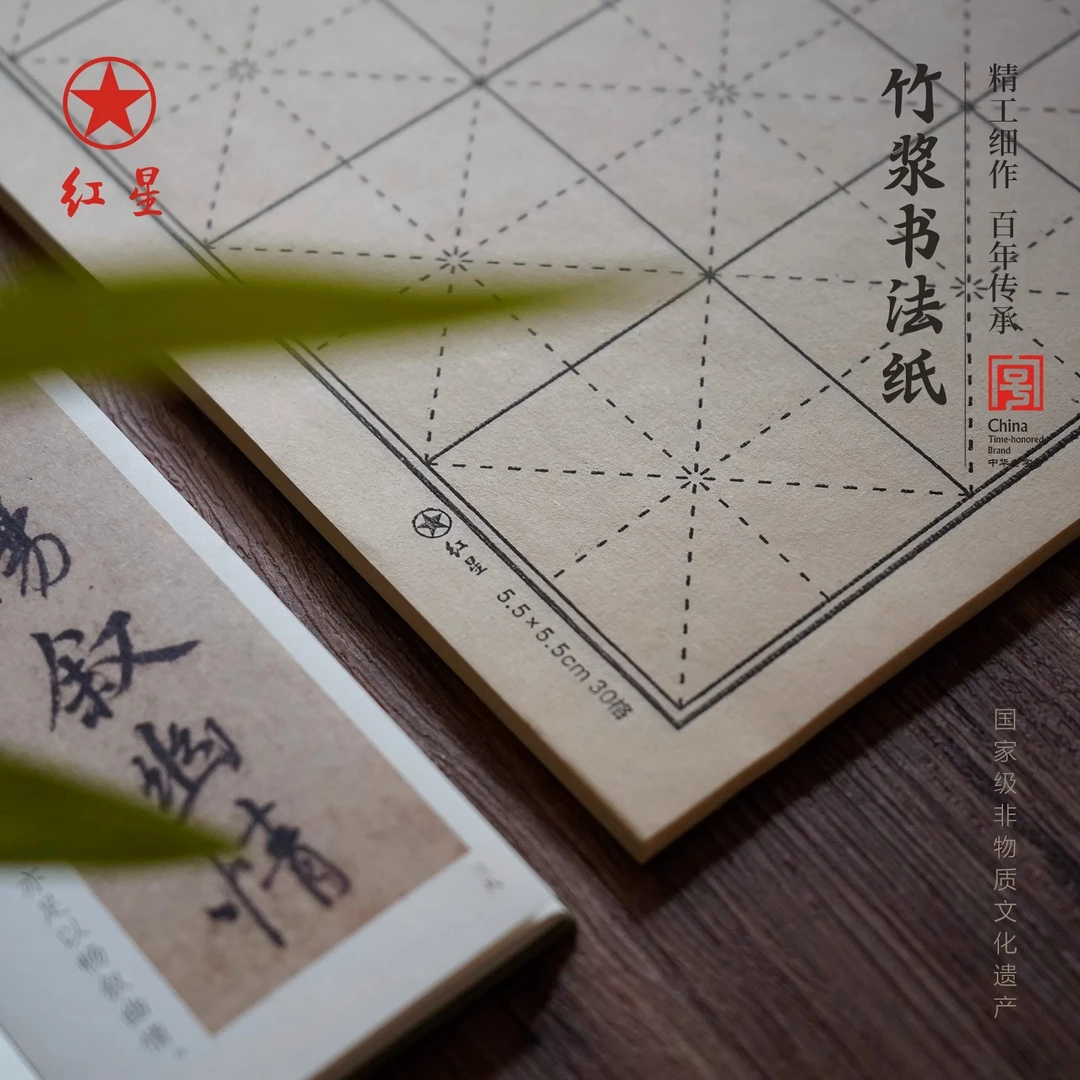 红星
竹浆书法纸
精工细作 百年传承
China
Time-honored
Brand
中华
红星
5.5×5.5cm 30格
叙幽情
足以畅叙幽情。
国家级非物质文化遗产